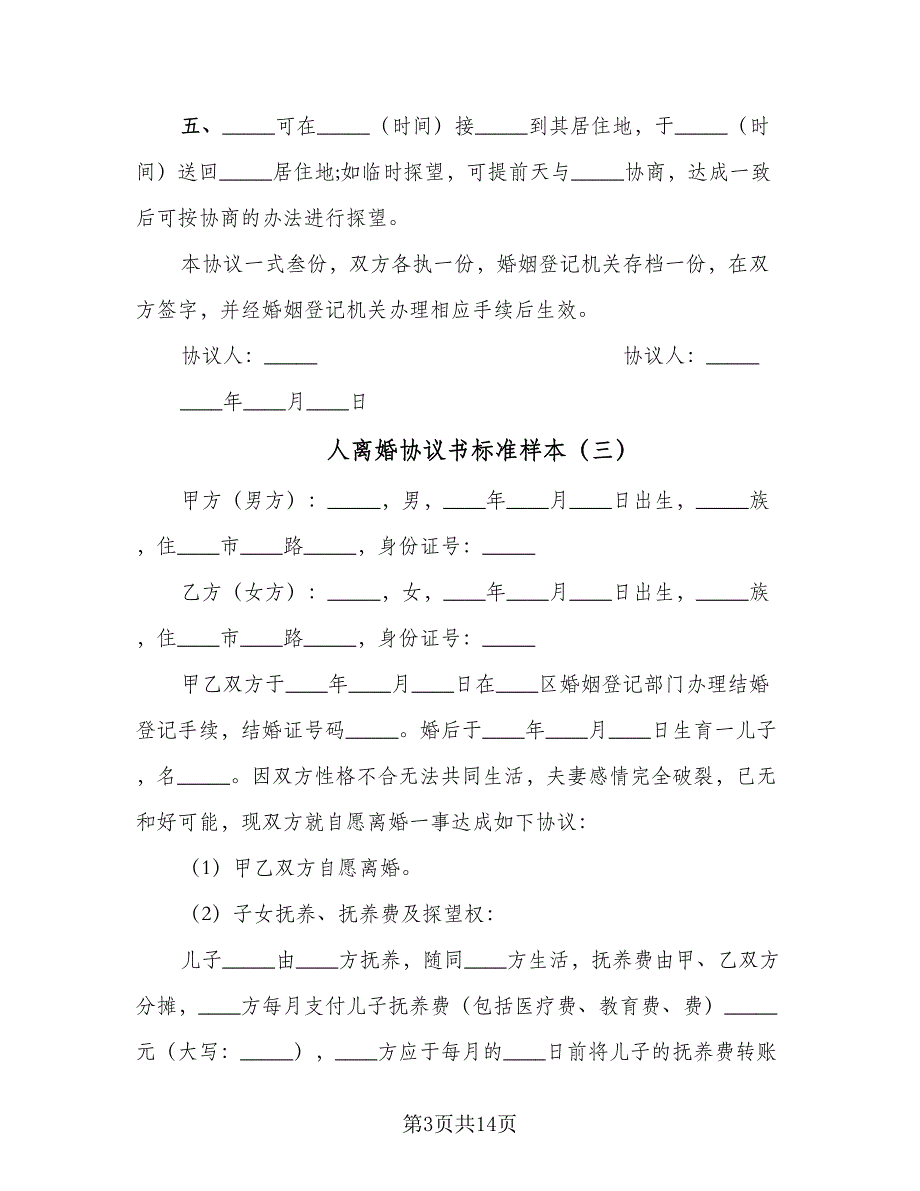 五、_____可在_____（时间）接_____到其居住地，于_____（时
间）送回_____居住地;如临时探望，可提前天与_____协商，达成一致
后可按协商的办法进行探望。
本协议一式叁份，双方各执一份，婚姻登记机关存档一份，在双
方签字，并经婚姻登记机关办理相应手续后生效。
协议人：_____ 协议人：_____
____年____月____日
人离婚协议书标准样本（三）
甲方（男方）：_____，男，____年____月____日出生，_____族
，住____市____路_____，身份证号：_____
乙方（女方）：_____，女，____年____月____日出生，_____族
，住____市____路_____，身份证号：_____
甲乙双方于____年____月____日在____区婚姻登记部门办理结婚
登记手续，结婚证号码_____。婚后于____年____月____日生育一儿子
，名_____。因双方性格不合无法共同生活，夫妻感情完全破裂，已无
和好可能，现双方就自愿离婚一事达成如下协议：
（1）甲乙双方自愿离婚。
（2）子女抚养、抚养费及探望权：
儿子_____由____方抚养，随同____方生活，抚养费由甲、乙双方
分摊，____方每月支付儿子抚养费（包括医疗费、教育费、费）_____
元（大写：_____），____方应于每月的____日前将儿子的抚养费转账
第3页共14页